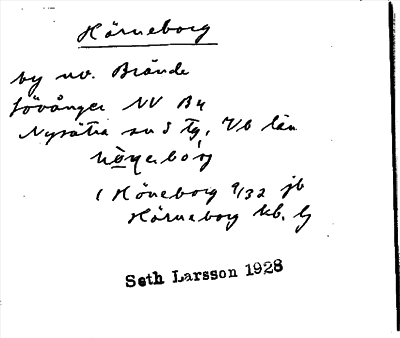 Hörneborg
by nv. Brände
Lövånger NV Bu
Nysätra sn S Tg, Vb län
(Höneborg 9/32 jb
Hörneborg kb. G
Seth Larsson 1928